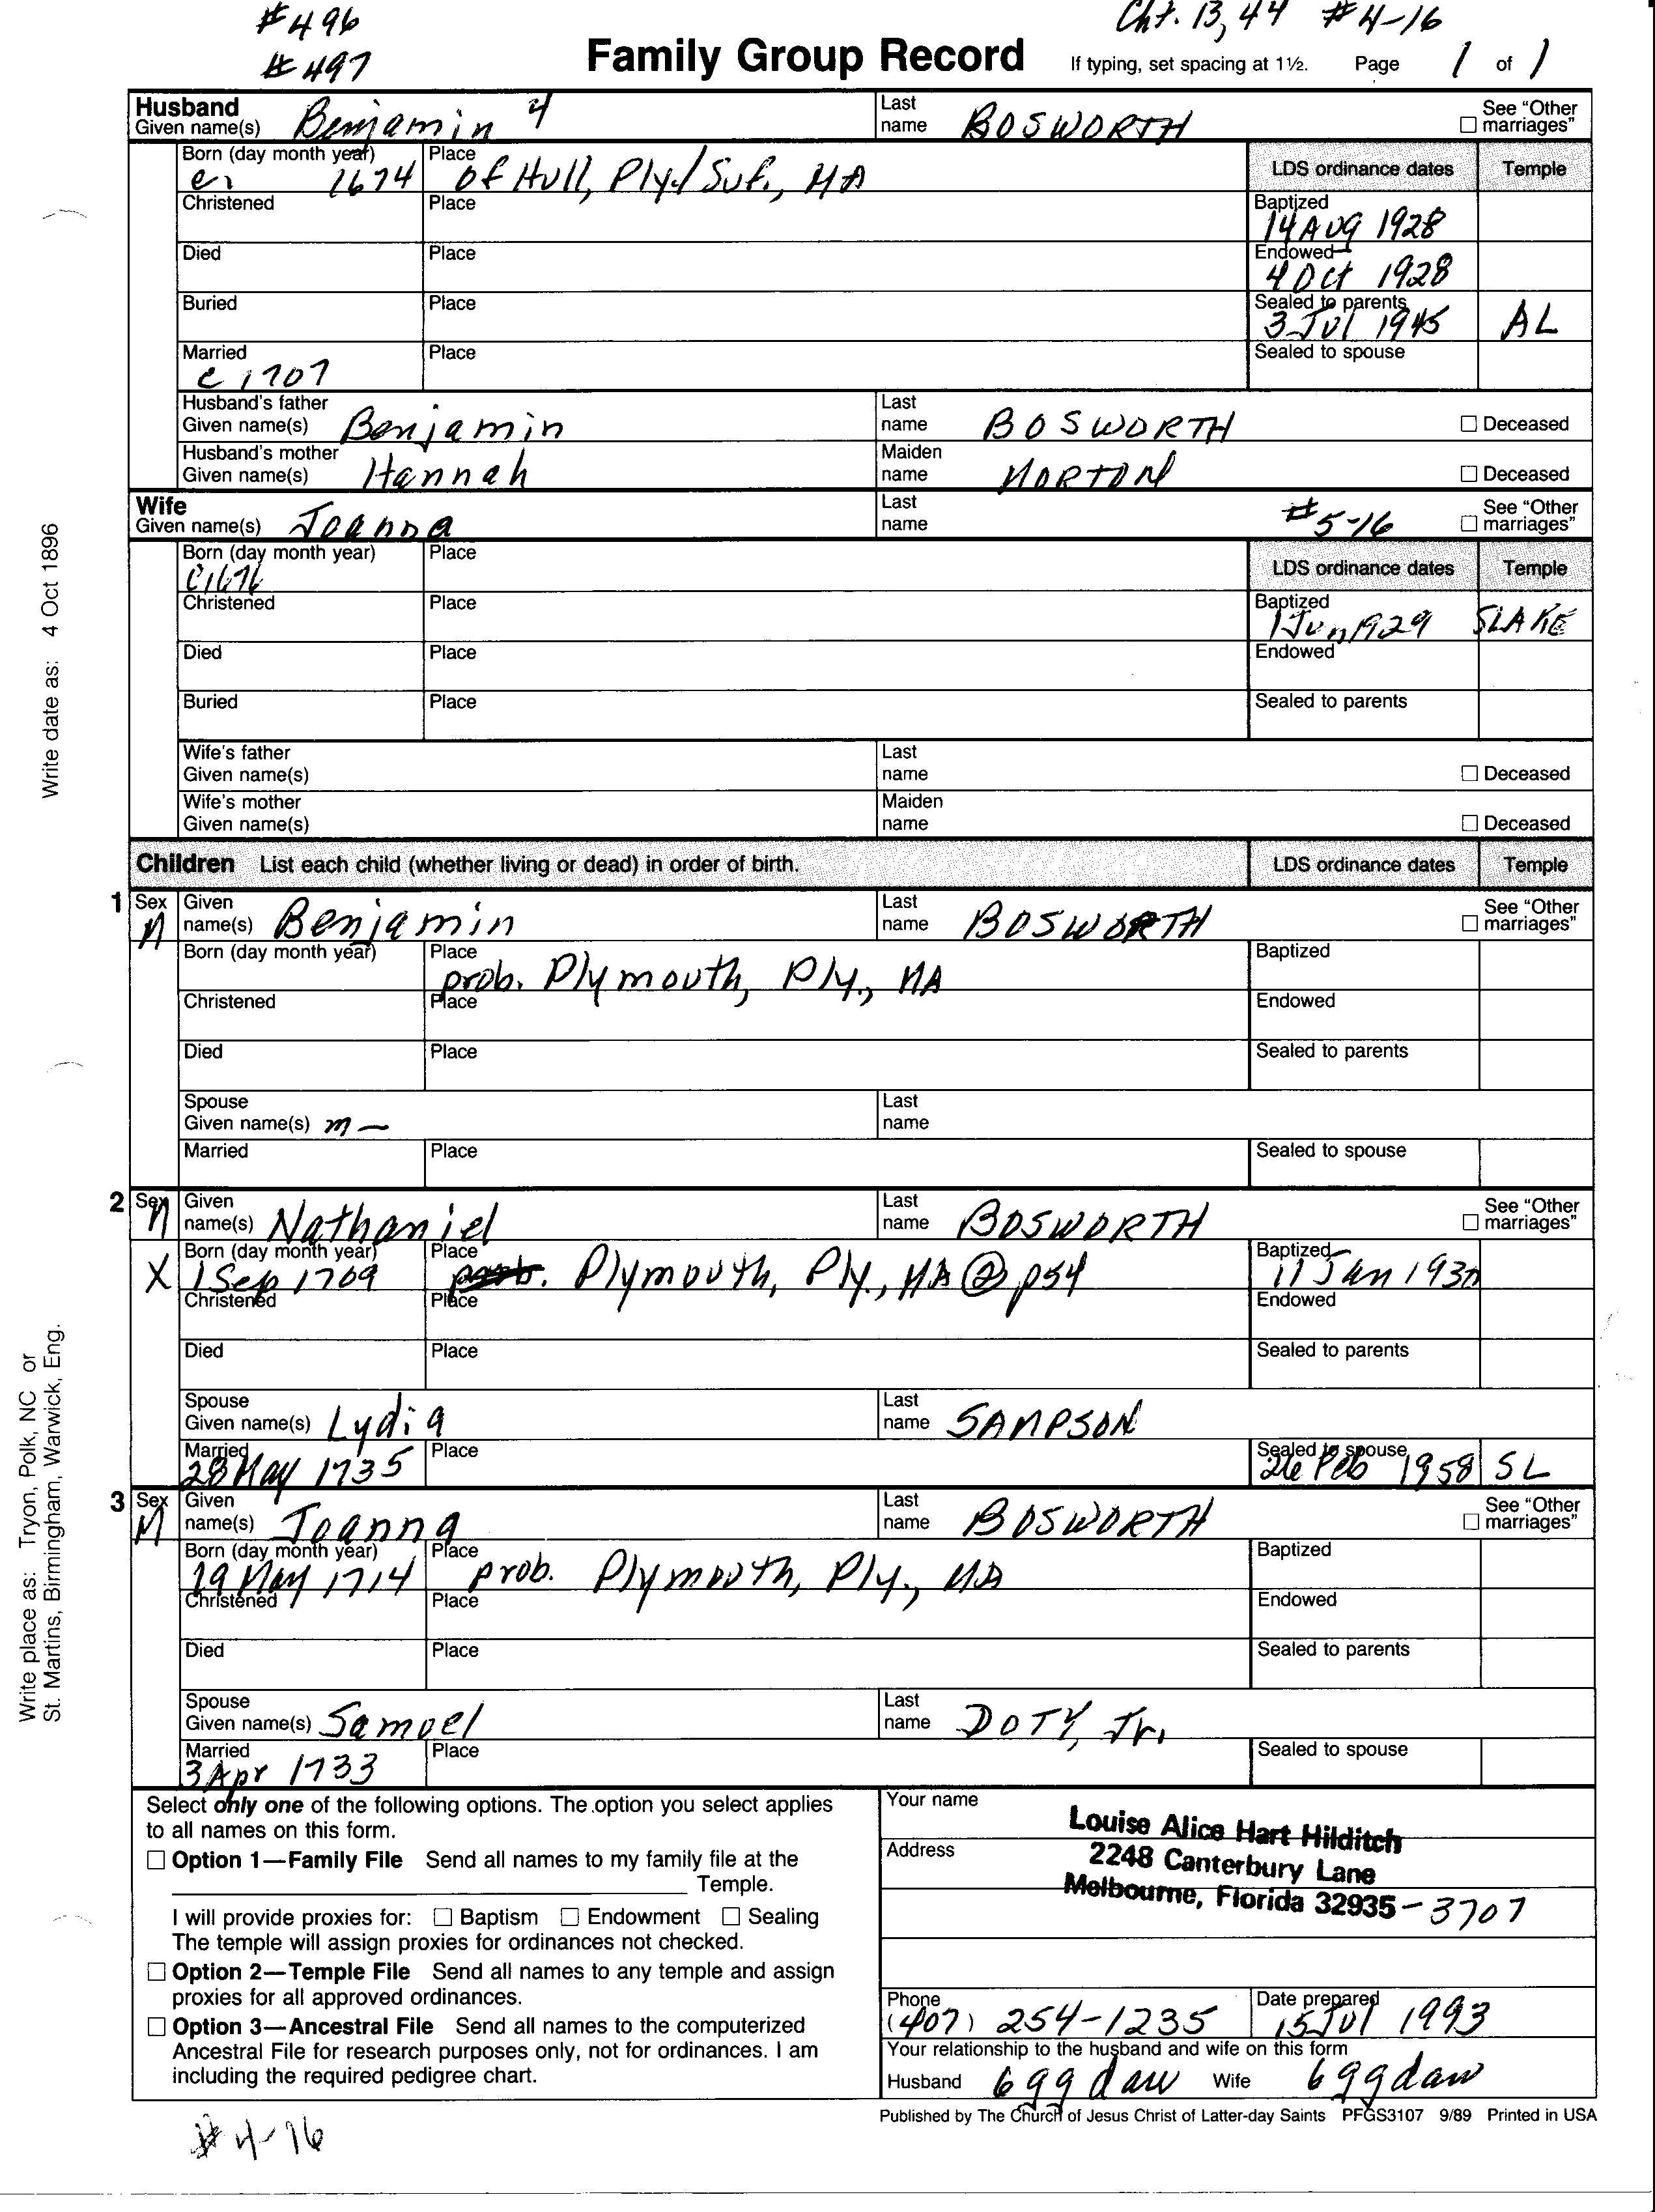 #496
Cht. 13, 44 #4-16
#497
Family Group Record
If typing, set spacing at 1½. Page 1 of 1
Husband
Given name(s) Benjamin 4
Last name BOSWORTH
See "Other marriages"
Born (day month year) 1674
Place of Hull, Ply./Suf., MA
LDS ordinance dates Temple
Christened
Place
Baptized 14 AUG 1928
Died
Place
Endowed 4 Oct 1928
Buried
Place
Sealed to parents 3 Jul 1945 AL
Married c 1707
Place
Sealed to spouse
Husband's father
Given name(s) Benjamin
Last name BOSWORTH
Deceased
Husband's mother
Given name(s) Hannah
Maiden name MORTON
Deceased
Wife
Given name(s) Joanna
Last name
#5-16
See "Other marriages"
Born (day month year) C1676
Place
LDS ordinance dates Temple
Christened
Place
Baptized 1 Jun 1929 SLAKE
Died
Place
Endowed
Buried
Place
Sealed to parents
Wife's father
Given name(s)
Last name
Deceased
Wife's mother
Given name(s)
Maiden name
Deceased
Children List each child (whether living or dead) in order of birth.
LDS ordinance dates Temple
1 Sex M
Given name(s) Benjamin
Last name BOSWORTH
See "Other marriages"
Born (day month year)
Place prob. Plymouth, Ply., MA
Baptized
Christened
Place
Endowed
Died
Place
Sealed to parents
Spouse
Given name(s) m —
Last name
Married
Place
Sealed to spouse
2 Sex M
Given name(s) Nathaniel
Last name BOSWORTH
See "Other marriages"
X
Born (day month year) 1 Sep 1709
Place Plymouth, Ply., MA @ p54
Baptized 11 Jan 193
Christened
Place
Endowed
Died
Place
Sealed to parents
Spouse
Given name(s) Lydia
Last name SAMPSON
Married 28 May 1735
Place
Sealed to spouse 26 Feb 1958 SL
3 Sex M
Given name(s) Joanna
Last name BOSWORTH
See "Other marriages"
Born (day month year) 19 May 1714
Place prob. Plymouth, Ply., MA
Baptized
Christened
Place
Endowed
Died
Place
Sealed to parents
Spouse
Given name(s) Samuel
Last name DOTY, Jr.
Married 3 Apr 1733
Place
Sealed to spouse
Select only one of the following options. The option you select applies
to all names on this form.
Option 1—Family File Send all names to my family file at the
Temple.
I will provide proxies for: Baptism Endowment Sealing
The temple will assign proxies for ordinances not checked.
Option 2—Temple File Send all names to any temple and assign
proxies for all approved ordinances.
Option 3—Ancestral File Send all names to the computerized
Ancestral File for research purposes only, not for ordinances. I am
including the required pedigree chart.
Your name
Louise Alice Hart Hilditch
Address
2248 Canterbury Lane
Melbourne, Florida 32935-3707
Phone (407) 254-1235
Date prepared 15 Jul 1993
Your relationship to the husband and wife on this form
Husband 6 gg dau Wife 6 ggdau
Published by The Church of Jesus Christ of Latter-day Saints PFGS3107 9/89 Printed in USA
#4-16
Write date as: 4 Oct 1896
Write place as: Tryon, Polk, NC or
St. Martins, Birmingham, Warwick, Eng.